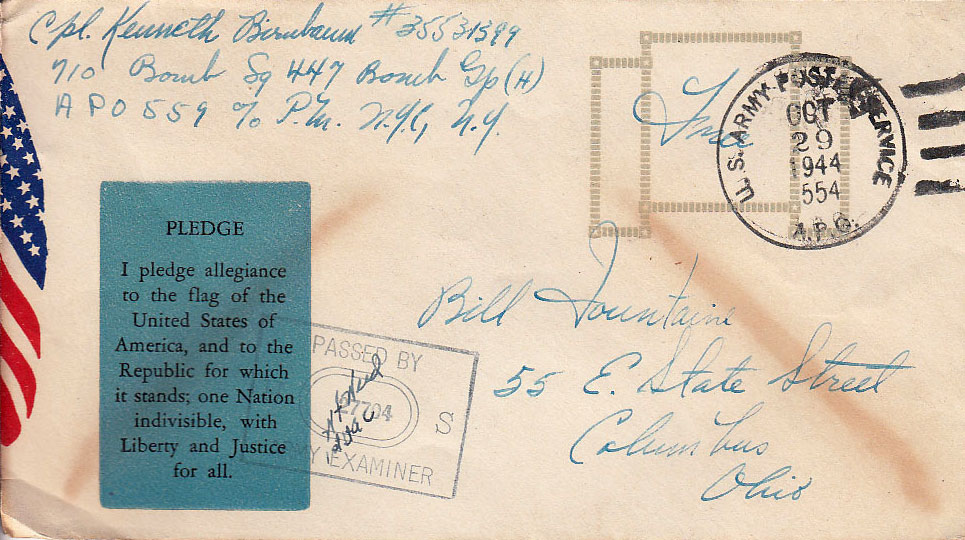 Cpl. Kenneth Birnbaum #35531399
710 Bomb Sq 447 Bomb Gp (H)
APO 559 % P.M. N.Y.C, N.Y.
Free
U.S. ARMY POSTAL SERVICE
OCT
29
1944
554
A.P.O.
PLEDGE
I pledge allegiance
to the flag of the
United States of
America, and to the
Republic for which
it stands; one Nation
indivisible, with
Liberty and Justice
for all.
Bill Fountaine
55 E. State Street
Columbus
Ohio
PASSED BY
7704
S
EXAMINER